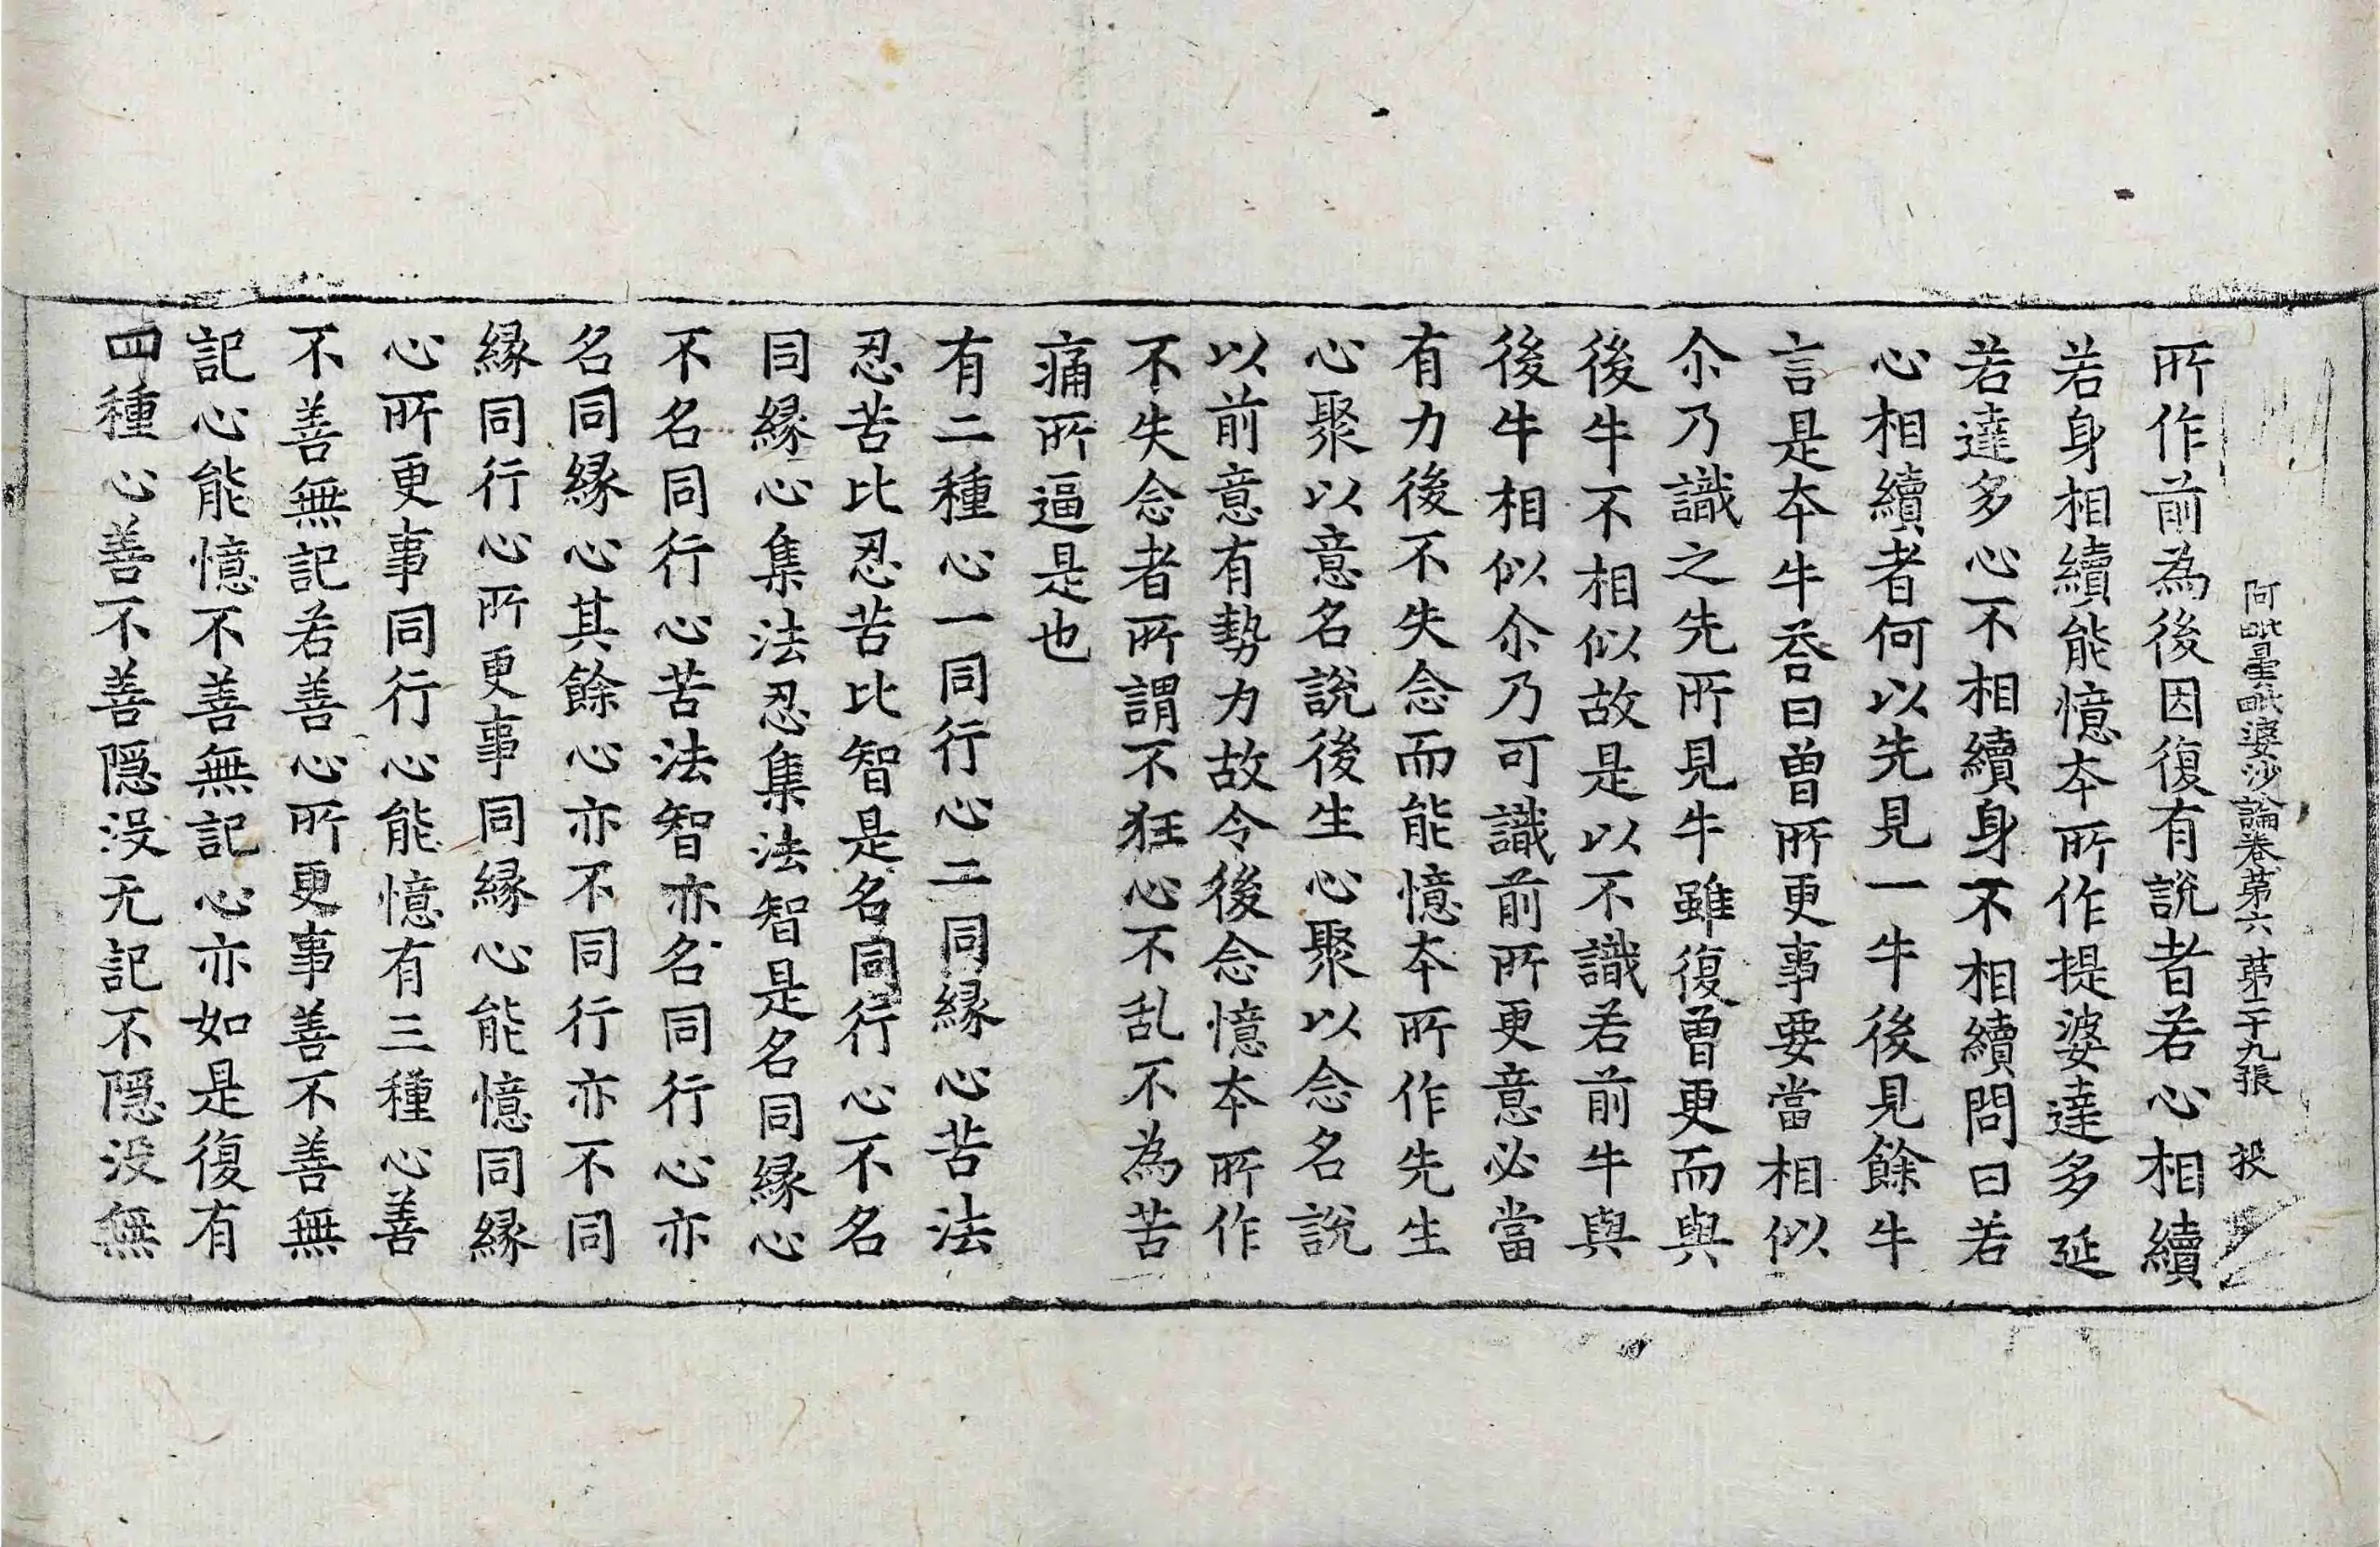 阿毗曇毗婆沙論卷第六 第二十九張 投
所作前為後因復有說者若心相續
若身相續能憶夲所作提婆達多延
若達多心不相續身不相續問曰若
心相續者何以先見一牛後見餘牛
言是夲牛荅曰曽所更事要當相似
尒乃識之先所見牛雖復曽更而與
後牛不相似故是以不識若前牛與
後牛相似尒乃可識前所更意必當
有力後不失念而能憶夲所作先生
心聚以意名說後生心聚以念名說
以前意有勢力故令後念憶夲所作
不失念者所謂不狂心不乱不為苦
痛所逼是也
有二種心一同行心二同縁心苦法
忍苦比忍苦比智是名同行心不名
同縁心集法忍集法智是名同縁心
不名同行心苦法智亦名同行心亦
名同縁心其餘心亦不同行亦不同
縁同行心所更事同縁心能憶同縁
心所更事同行心能憶有三種心善
不善無記若善心所更事善不善無
記心能憶不善無記心亦如是復有
四種心善不善隠没无記不隠没無